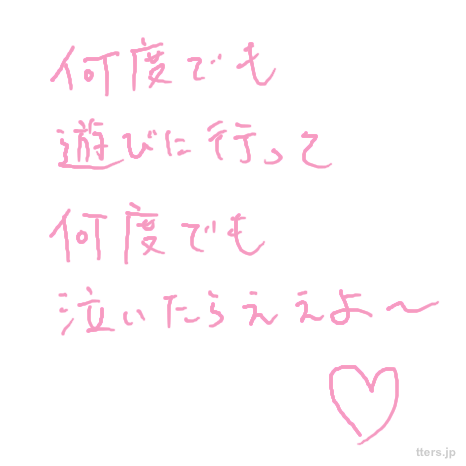 何度でも
遊びに行って
何度でも
泣いたらええよ〜
tters.jp